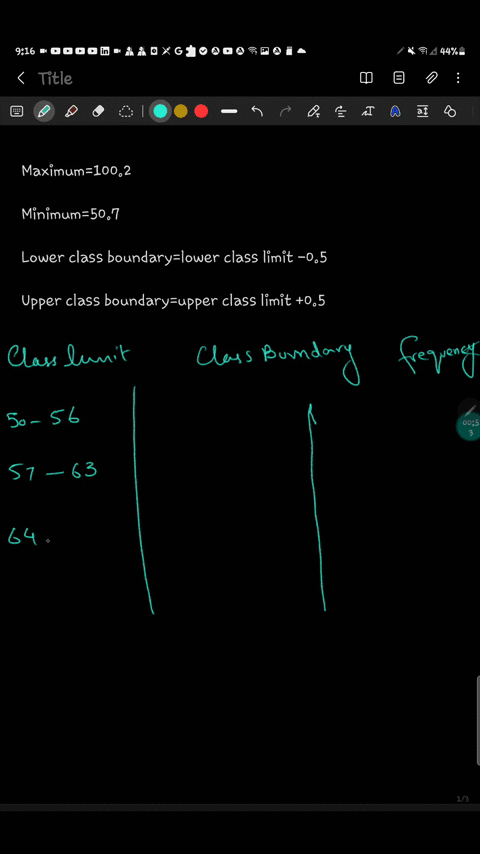 9:16 44%
Title
Maximum=100.2
Minimum=50.7
Lower class boundary=lower class limit -0.5
Upper class boundary=upper class limit +0.5
Class limit Class Boundary frequency
50 - 56
57 - 63
64
00:53
1/3